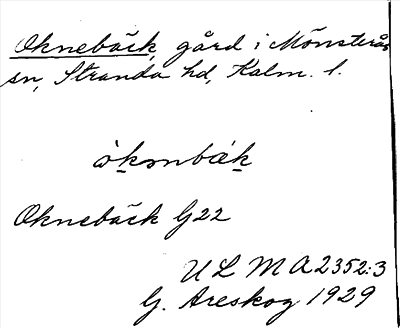 Oknebäck, gård i Mönsterås
sn, Stranda hd, Kalm. l.
òknbæk
Oknebäck G22
ULMA 2352:3
G. Areskog 1929